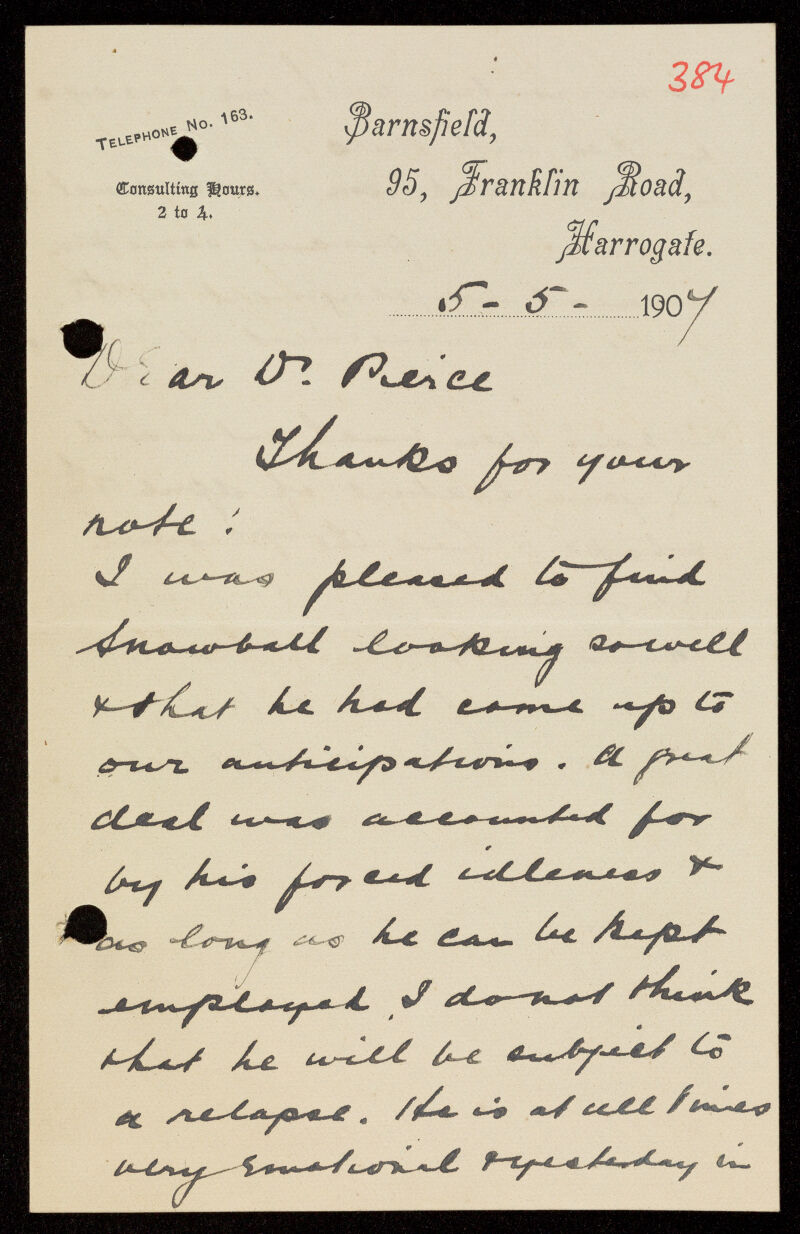 384
TELEPHONE No. 163.
Consulting Hours.
2 to 4.
Barnsfield,
95, Franklin Road,
Harrogate.
5 - 5 - 1907
DEar Dr. Pierce
Thanks for your
note:
I was pleased to find
Snowball looking so well
& that he had come up to
our anticipations. A great
deal was accounted for
by his forced idleness &
as long as he can be kept
employed, I do not think
that he will be subject to
a relapse. He is at all times
very Emotional & yesterday in